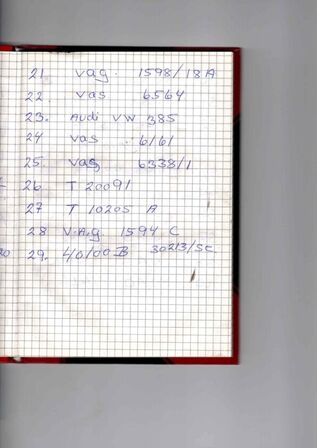 21. vag. 1598/18A
22. vas 6564
23. Audi VW 385
24 vas 6161
25. vag 6338/1
26 T 20091
27 T 10205 A
28 V.A.g. 1594 C
29. 40100B 30213/5C